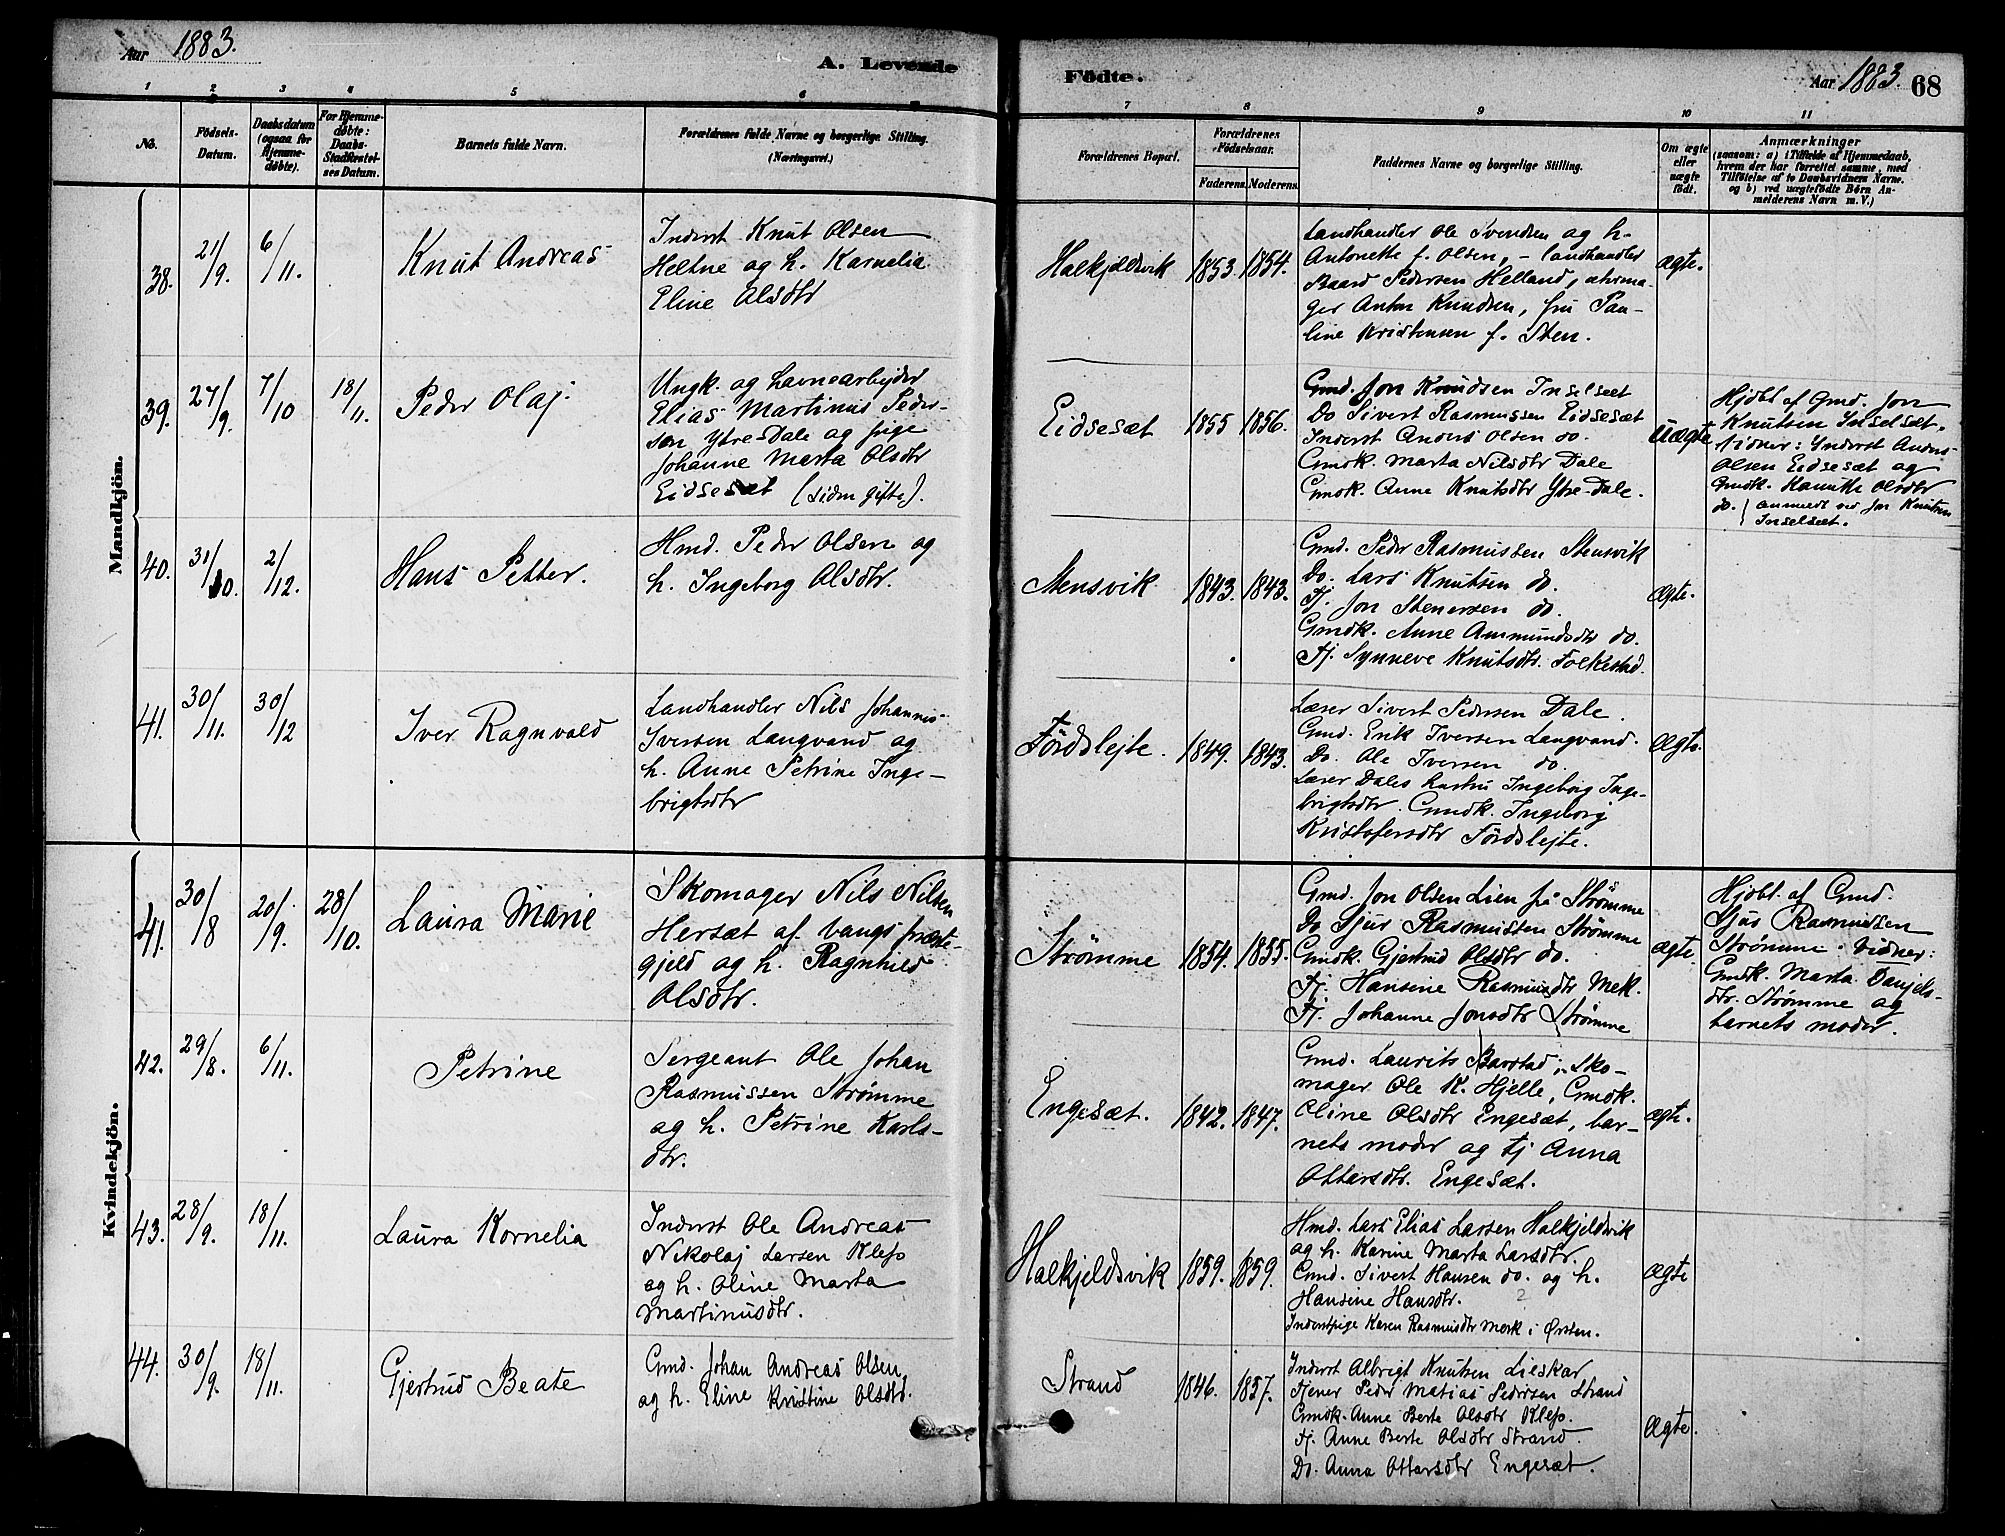 Aar 1883.
A. Levende Födte.
Aar 1883. 68
1 2 3 4 5 6 7 8 9 10 11
No.
Födsels-
Datum.
Daabsdatum
(ogsaa for
Hjemme-
døbte).
For Hjemme-
døbte:
Daabs-
Stadfæstel-
ses Datum.
Barnets fulde Navn.
Forældrenes fulde Navne og borgerlige Stilling.
(Næringsvei.)
Forældrenes Bopæl.
Forældrenes
Födselsaar.
Faderens. Moderens.
Faddernes Navne og borgerlige Stilling.
Om ægte
eller
uægte
født.
Anmærkninger
(saasom: a) i Tilfælde af Hjemmedaab,
hvem der har forrettet samme, med
Tilføielse af to Daabsvidners Navne.
og b) ved uægtefödte Börn An-
melderens Navn m. V.)
Mandkjön.
38. 21/9. 6/11. Knut Andreas
Inderst Knut Olsen
Heltne og h. Karnelia
Eline Olsdtr
Halkjeldsvik 1853. 1854.
Landhandler Ole Svendsen og h.
Antonette f. Olsen, – Landhandler
Baard Pedersen Helland, uhrma-
ger Anton Knudsen, fru Pau-
line Kristensen f. Sten.
ægte.
39. 27/9. 7/10 18/11. Peder Olaj.
Ungk. og havnearbejder
Elias Martinus Peder-
sen Ytre-Dale og pige
Johanne Marta Olsdtr
Eidsesæt (siden gifte).
Eidsesæt 1855 1856.
Gmd. Jon Knudsen Inselsæt
Do Sivert Rasmussen Eidsesæt
Inderst Anders Olsen do.
Gmdk. Marta Nilsdtr Dale
Gmdk. Anne Knutsdtr Ytre-Dale.
uægte
Hjdbt af Gmd. Jon
Knutsen Inselsæt.
Vidner: Inderst Anders
Olsen Eidsesæt og
Gmdk. Olsdtr
do. anmeldt ved Jon Knutsen
Inselsæt.
40. 31/10. 2/12. Hans Petter.
Hmd. Peder Olsen og
h. Ingeborg Olsdtr.
Stensvik 1843. 1843.
Gmd. Peder Rasmussen Stensvik
Do. Lars Knutsen do.
Tj. Jon Stenersen do.
Gmdk. Anne Ammundsdtr do.
Tj. Synneve Knutsdtr. Folkestad
ægte.
41. 30/11. 30/12 Iver Ragnvald
Landhandler Nils Johannes
Iversen Langvand og
h. Anne Petrine Inge-
brigtsdtr
Fördslejte. 1849. 1843.
Lærer Sivert Pedersen Dale.
Gmd. Erik Iversen Langvand.
Do. Ole Iversen do.
Lærer Dales hustru Ingeborg Inge-
brigtsdtr. Gmdk. Ingeborg
Kristofersdtr Fördslejte.
Ægte.
Kvindekjön.
41. 30/8 20/9. 28/10. Laura Marie
Skomager Nils Nilsen
Hersæt af Vangs præste-
gjeld og h. Ragnhild
Olsdtr.
Strømme 1854. 1855.
Gmd. Jon Olsen Lien på Strömme
Do Sjur Rasmussen Strömme
Gmdk. Gjertrud Olsdtr do.
Tj. Hansene Rasmusdtr Mek.
Tj. Johanne Jonsdtr Strömme
ægte
Hjdbt. af Gmd.
Sjus Rasmussen
Strömme. Vidner:
Gmdk. Marta Danjels-
dtr. Strømme og
barnets moder.
42. 29/8. 6/11. Petrine
Sergeant Ole Johan
Rasmussen Strømme
og h. Petrine Karls-
dtr.
Engesæt. 1842. 1847.
Gmd. Laurits Barstad; Sko-
mager Ole K. Hjelle, Gmdk.
Oline Olsdtr Engesæt, bar-
nets moder og tj Anna
Ottarsdtr. Engesæt.
ægte.
43. 28/9. 18/11. Laura Kornelia
Inderst Ole Andreas
Nikolaj Larsen Klepp
og h. Oline Marta
Martinusdtr.
Halkjeldsvik 1859. 1859.
Hmd. Lars Elias Larsen Halkjeldsvik
og h. Karine Marta Larsdtr.
Gmd. Sivert Hansen do. og h.
Hansine Hansdtr.
Inderstpige Karen Rasmusdtr Mork i Ørsten.
Ægte
44. 30/9. 18/11. Gjertrud Beate
Gmd. Johan Andreas Olsen
og h. Eline Kristine Olsdtr.
Strand 1846. 1857.
Inderst Albrigt Knutsen Lieskar
Tjener Peder Matias Pedersen Strand
Gmdk. Anne Berte Olsdtr Klepp.
Tj. Anne Berte Olsdtr Strand.
Do. Anna Ottarsdtr Engesæt.
Ægte.